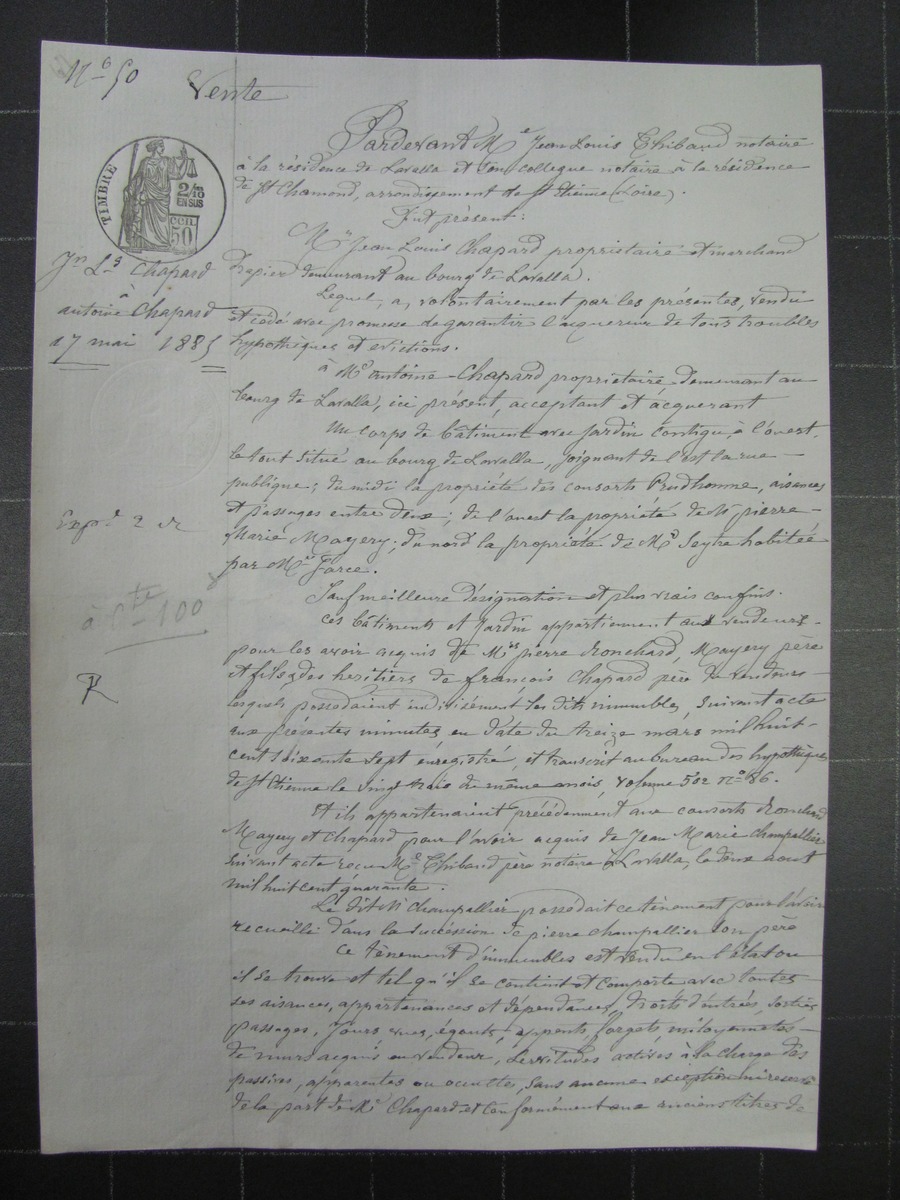 No 50
Vente
TIMBRE
2/10
EN SUS
CEN.
50
Jn Ls Chapard
à
antoine Chapard
17 mai 1885
Expd 2 r
à Cte 100
R
Pardevant Me Jean Louis Thibaud notaire
à la résidence de Lavalla et son collegue notaire à la résidence
de St Chamond, arrondissement de St Etienne (Loire).
Fut présent:
Mr Jean Louis Chapard propriétaire et marchand
drapier demeurant au bourg de Lavalla.
Lequel, a, volontairement par les présentes, vendu
et cédé avec promesse de garantir l'acquereur de tous troubles
hypothèques et evictions.
à Mr antoine Chapard propriétaire demeurant au
bourg de Lavalla, ici présent, acceptant et acquerant
Un corps de bâtiment avec jardin contigu, à l'ouest,
le tout situé au bourg de Lavalla, joignant de l'est la rue
publique; du midi la propriété des consorts Prudhomme, aisances
et passages entre deux; de l'ouest la propriété de Mr pierre
Marie Mayery; du nord la propriété de Mr Seytre habitée
par Mr Farce.
Sauf meilleure désignation et plus vrais confins.
Ces bâtiments et jardin appartiennent aux vendeurs
pour les avoir acquis de Mrs pierre Ronchard, Mayery père
et fils, des heritiers de françois Chapard père du vendeur
lesquels possedaient indivisément les dits immeubles, suivant acte
aux présentes minutes en date du treize mars mil huit
cent soixante sept enregistré, et transcrit au bureau des hypothèques
de St Etienne le vingt trois du même mois, volume 502 no 86.
Et ils appartenaient précédemment aux consorts Ronchard
Mayery et Chapard pour l'avoir acquis de Jean Marie Champallier
suivant acte recu Me Thibaud père notaire à Lavalla, le deux aout
mil huit cent quarante.
Le dit Mr Champallier possedait ce tènement pour l'avoir
recueilli dans la succession de pierre Champallier son père
Ce tènement d'immeubles est vendu en l'état ou
il se trouve et tel qu'il se contient et comporte avec toutes
ses aisances, appartenances et dépendances, droits d'entrées, sorties
passages, jours vues, égouts, appents, forgets, mitoyennetés
de murs acquis au vendeur, servitudes actives à la charge des
passives, apparentes ou occultes, sans aucune exception ni reserve
de la part de Mr Chapard et conformément aux anciens titres de